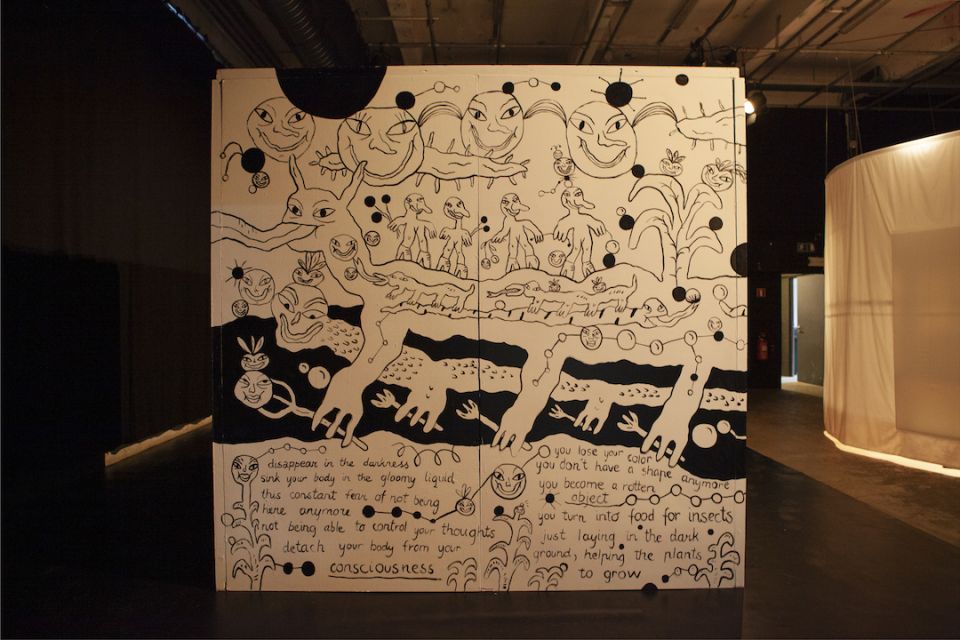 disappear in the darkness
sink your body in the gloomy liquid
this constant fear of not being
here anymore
not being able to control your thoughts
detach your body from your
consciousness
you lose your color
you don't have a shape anymore
you become a rotten
object
you turn into food for insects
just laying in the dark
ground, helping the plants
to grow